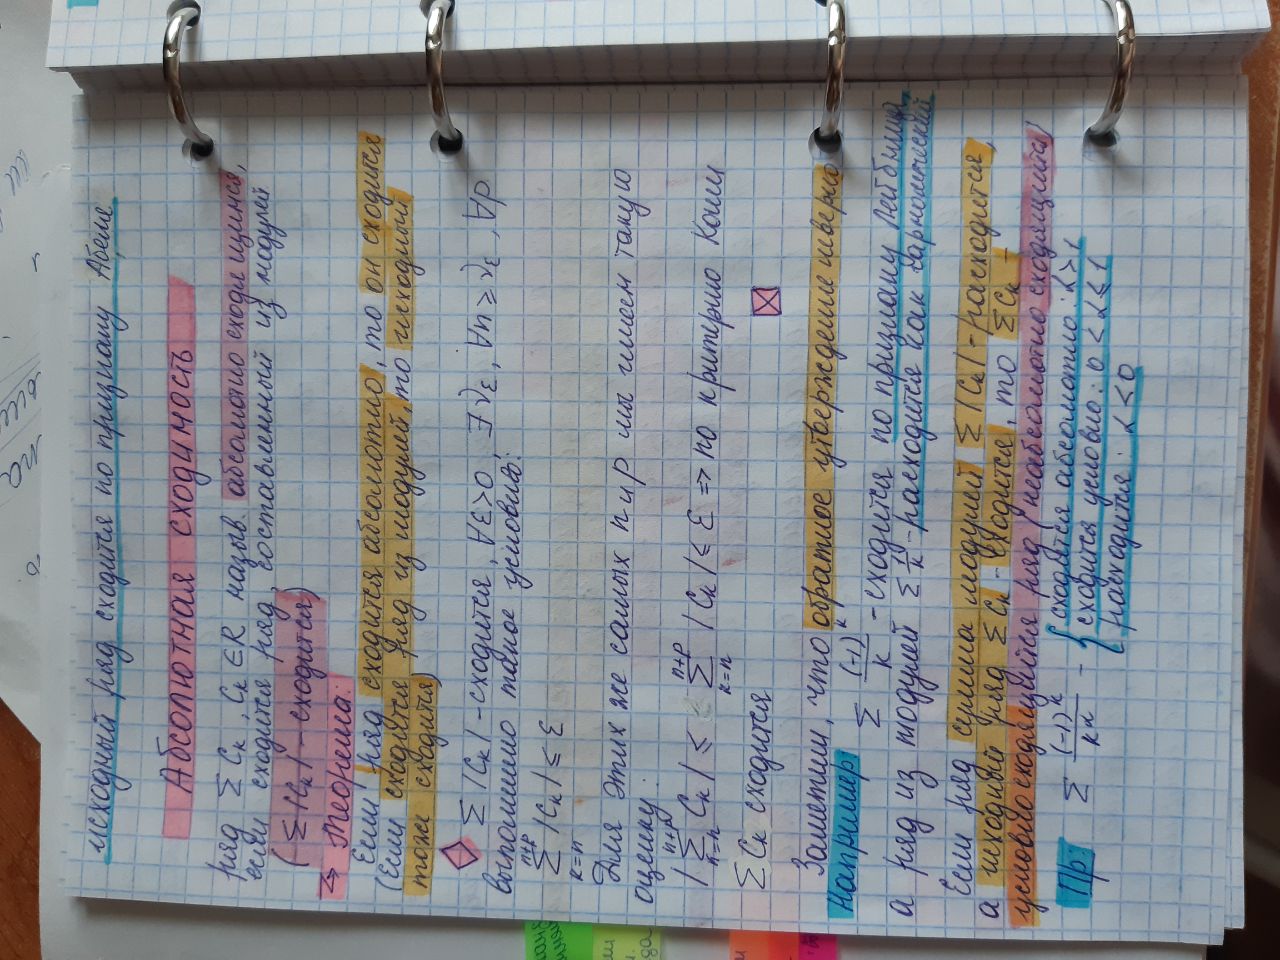 исходный ряд сходится по признаку Абеля
Абсолютная сходимость
ряд ΣCₖ, Cₖ∈R назыв. абсолютно сходящимся,
если сходится ряд, составленный из модулей
(Σ|Cₖ| - сходится)
→ Теорема:
Если ряд сходится абсолютно, то он сходится
(Если сходится ряд из модулей, то исходный
тоже сходится)
Σ|Cₖ| - сходится, ∀ε>0, ∃n_ε, ∀n≥n_ε, ∀p
выполнено такое условие:
n+p
Σ |Cₖ| ≤ ε
k=n
Для этих же самых n и p мы имеем такую
оценку:
n+p n+p
|Σ Cₖ| ≤ Σ |Cₖ| ≤ ε => по критерию Коши
k=n k=n
ΣCₖ сходится
Заметим, что обратное утверждение неверно
Например: Σ (-1)ᵏ/k - сходится по признаку Лейбница,
а ряд из модулей Σ 1/k - расходится как гармонический
Если ряд сумма модулей Σ|Cₖ| - расходится,
а исходный ряд ΣCₖ - сходится, то ΣCₖ -
условно сходящийся ряд (неабсолютно сходящийся)
Пр: Σ (-1)ᵏ/k^α - { сходится абсолютно: α>1
сходится условно: 0<α≤1
расходится: α<0